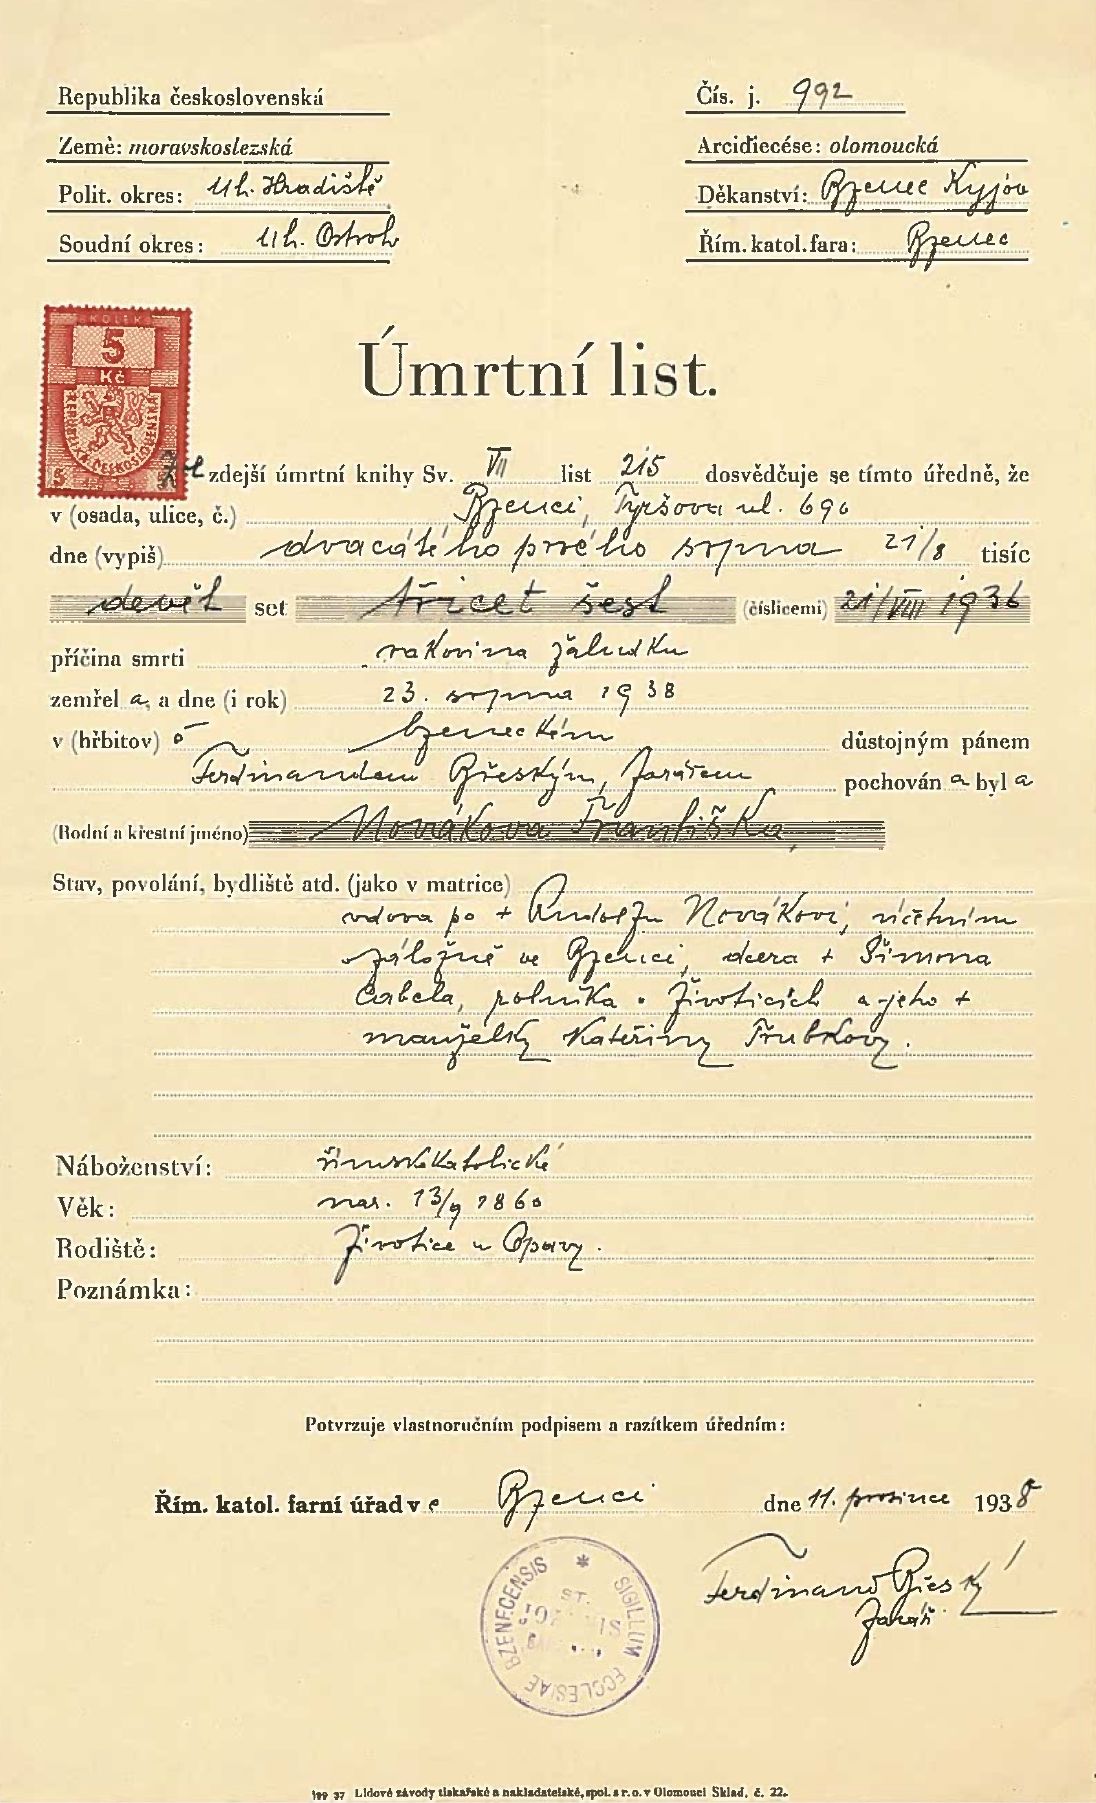 Republika československá
Čís. j. 992
Země: moravskoslezská
Arcidiecése: olomoucká
Polit. okres: Uh. Hradiště
Děkanství: Bzenec Kyjov
Soudní okres: Uh. Ostroh
Řím. katol. fara: Bzenec
KOLEK
5
Kč
5
Úmrtní list.
Ze zdejší úmrtní knihy Sv. VII list 215 dosvědčuje se tímto úředně, že
v (osada, ulice, č.) Bzenci, Tyršova ul. 690
dne (vypiš) dvacátého prvého srpna 21/8 tisíc
devět set třicet šest (číslicemi) 21/VIII 1936
příčina smrti rakovina žaludku
zemřel a, a dne (i rok) 23. srpna 1938
v (hřbitov) bzeneckém důstojným pánem
Ferdinandem Břeským, farářem pochován a byl a
(Rodní a křestní jméno) Nováková Františka,
Stav, povolání, bydliště atd. (jako v matrice)
vdova po + Rudolfu Novákovi, účetním
záložně ve Bzenci, dcera + Šimona
rolníka v Životicích a jeho +
manželky Kateřiny Trubkovy.
Náboženství: římskokatolické
Věk: nar. 13/9 1860
Rodiště: Životice u Opavy.
Poznámka:
Potvrzuje vlastnoručním podpisem a razítkem úředním:
Řím. katol. farní úřad v e Bzenci dne 11. prosince 1938
SIGILLUM ECCLESIAE BZENECENSIS
ST.
Ferdinand Břeský
farář
Lidové závody tiskařské a nakladatelské, spol. s r. o. v Olomouci Sklad. č. 22.